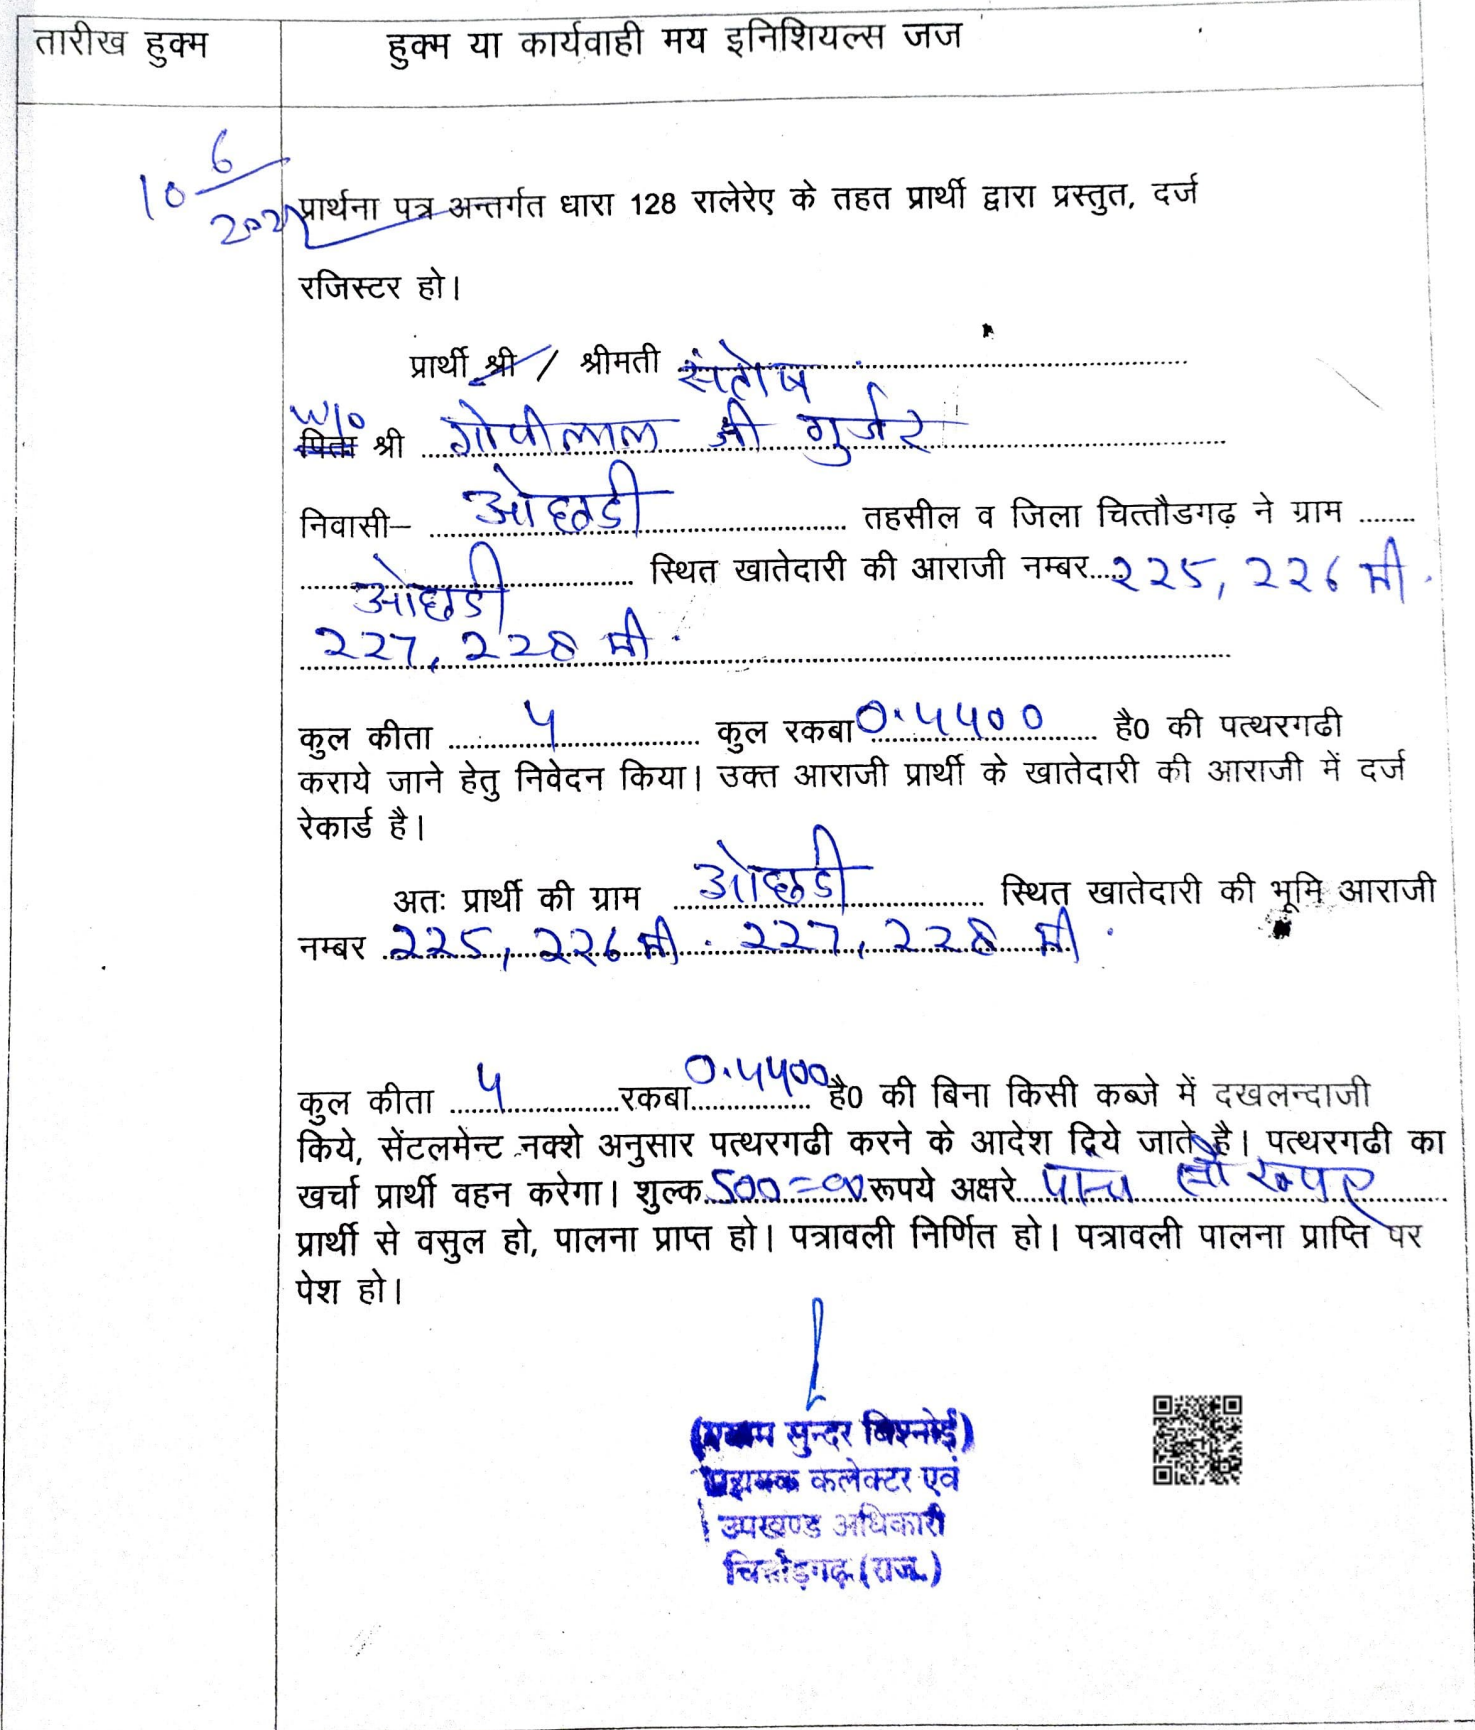 तारीख हुक्म
हुक्म या कार्यवाही मय इनिशियल्स जज
10 6
प्रार्थना पत्र अन्तर्गत धारा 128 रालेरेए के तहत प्रार्थी द्वारा प्रस्तुत, दर्ज
रजिस्टर हो।
प्रार्थी श्री / श्रीमती संतोष
W/o
पिता श्री गोपीलाल जी गुर्जर
निवासी– ओछडी तहसील व जिला चित्तौडगढ़ ने ग्राम
ओछडी स्थित खातेदारी की आराजी नम्बर 225, 226 मी.
227, 228 मी.
कुल कीता 4 कुल रकबा 0.4400 है0 की पत्थरगढी
कराये जाने हेतु निवेदन किया। उक्त आराजी प्रार्थी के खातेदारी की आराजी में दर्ज
रेकार्ड है।
अतः प्रार्थी की ग्राम ओछडी स्थित खातेदारी की भूमि आराजी
नम्बर 225, 226 मी. 227, 228 मी.
कुल कीता 4 रकबा 0.4400 है0 की बिना किसी कब्जे में दखलन्दाजी
किये, सेंटलमेन्ट नक्शे अनुसार पत्थरगढी करने के आदेश दिये जाते है। पत्थरगढी का
खर्चा प्रार्थी वहन करेगा। शुल्क 500=00 रूपये अक्षरे पान्च सौ रूपए
प्रार्थी से वसुल हो, पालना प्राप्त हो। पत्रावली निर्णित हो। पत्रावली पालना प्राप्ति पर
पेश हो।
सुन्दर बिश्नोई)
कलेक्टर एवं
उपखण्ड अधिकारी
चित्तौड़गढ़ (राज.)